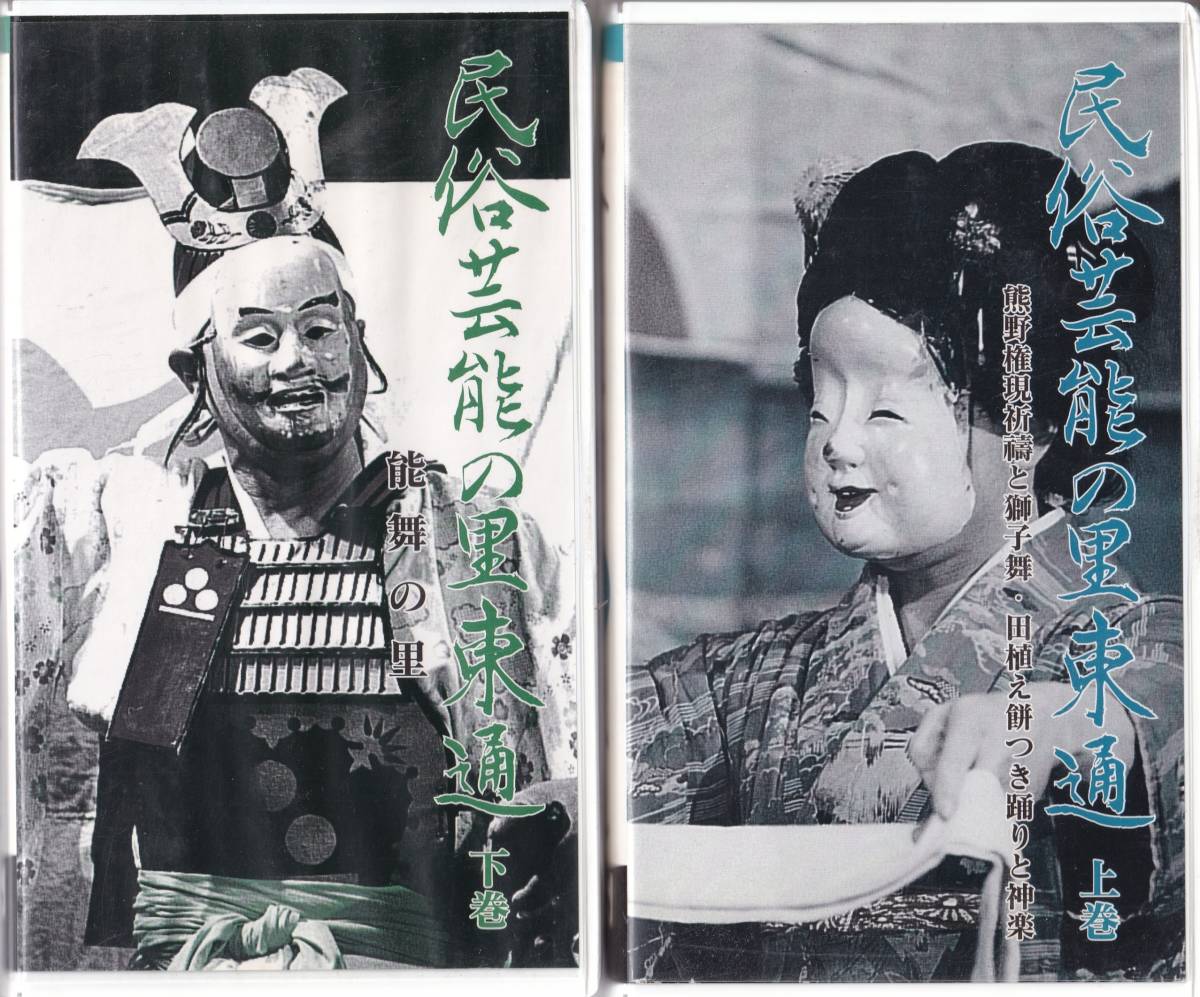 民俗芸能の里東通
能舞の里
下巻
民俗芸能の里東通
熊野権現祈禱と獅子舞・田植え餅つき踊りと神楽
上巻